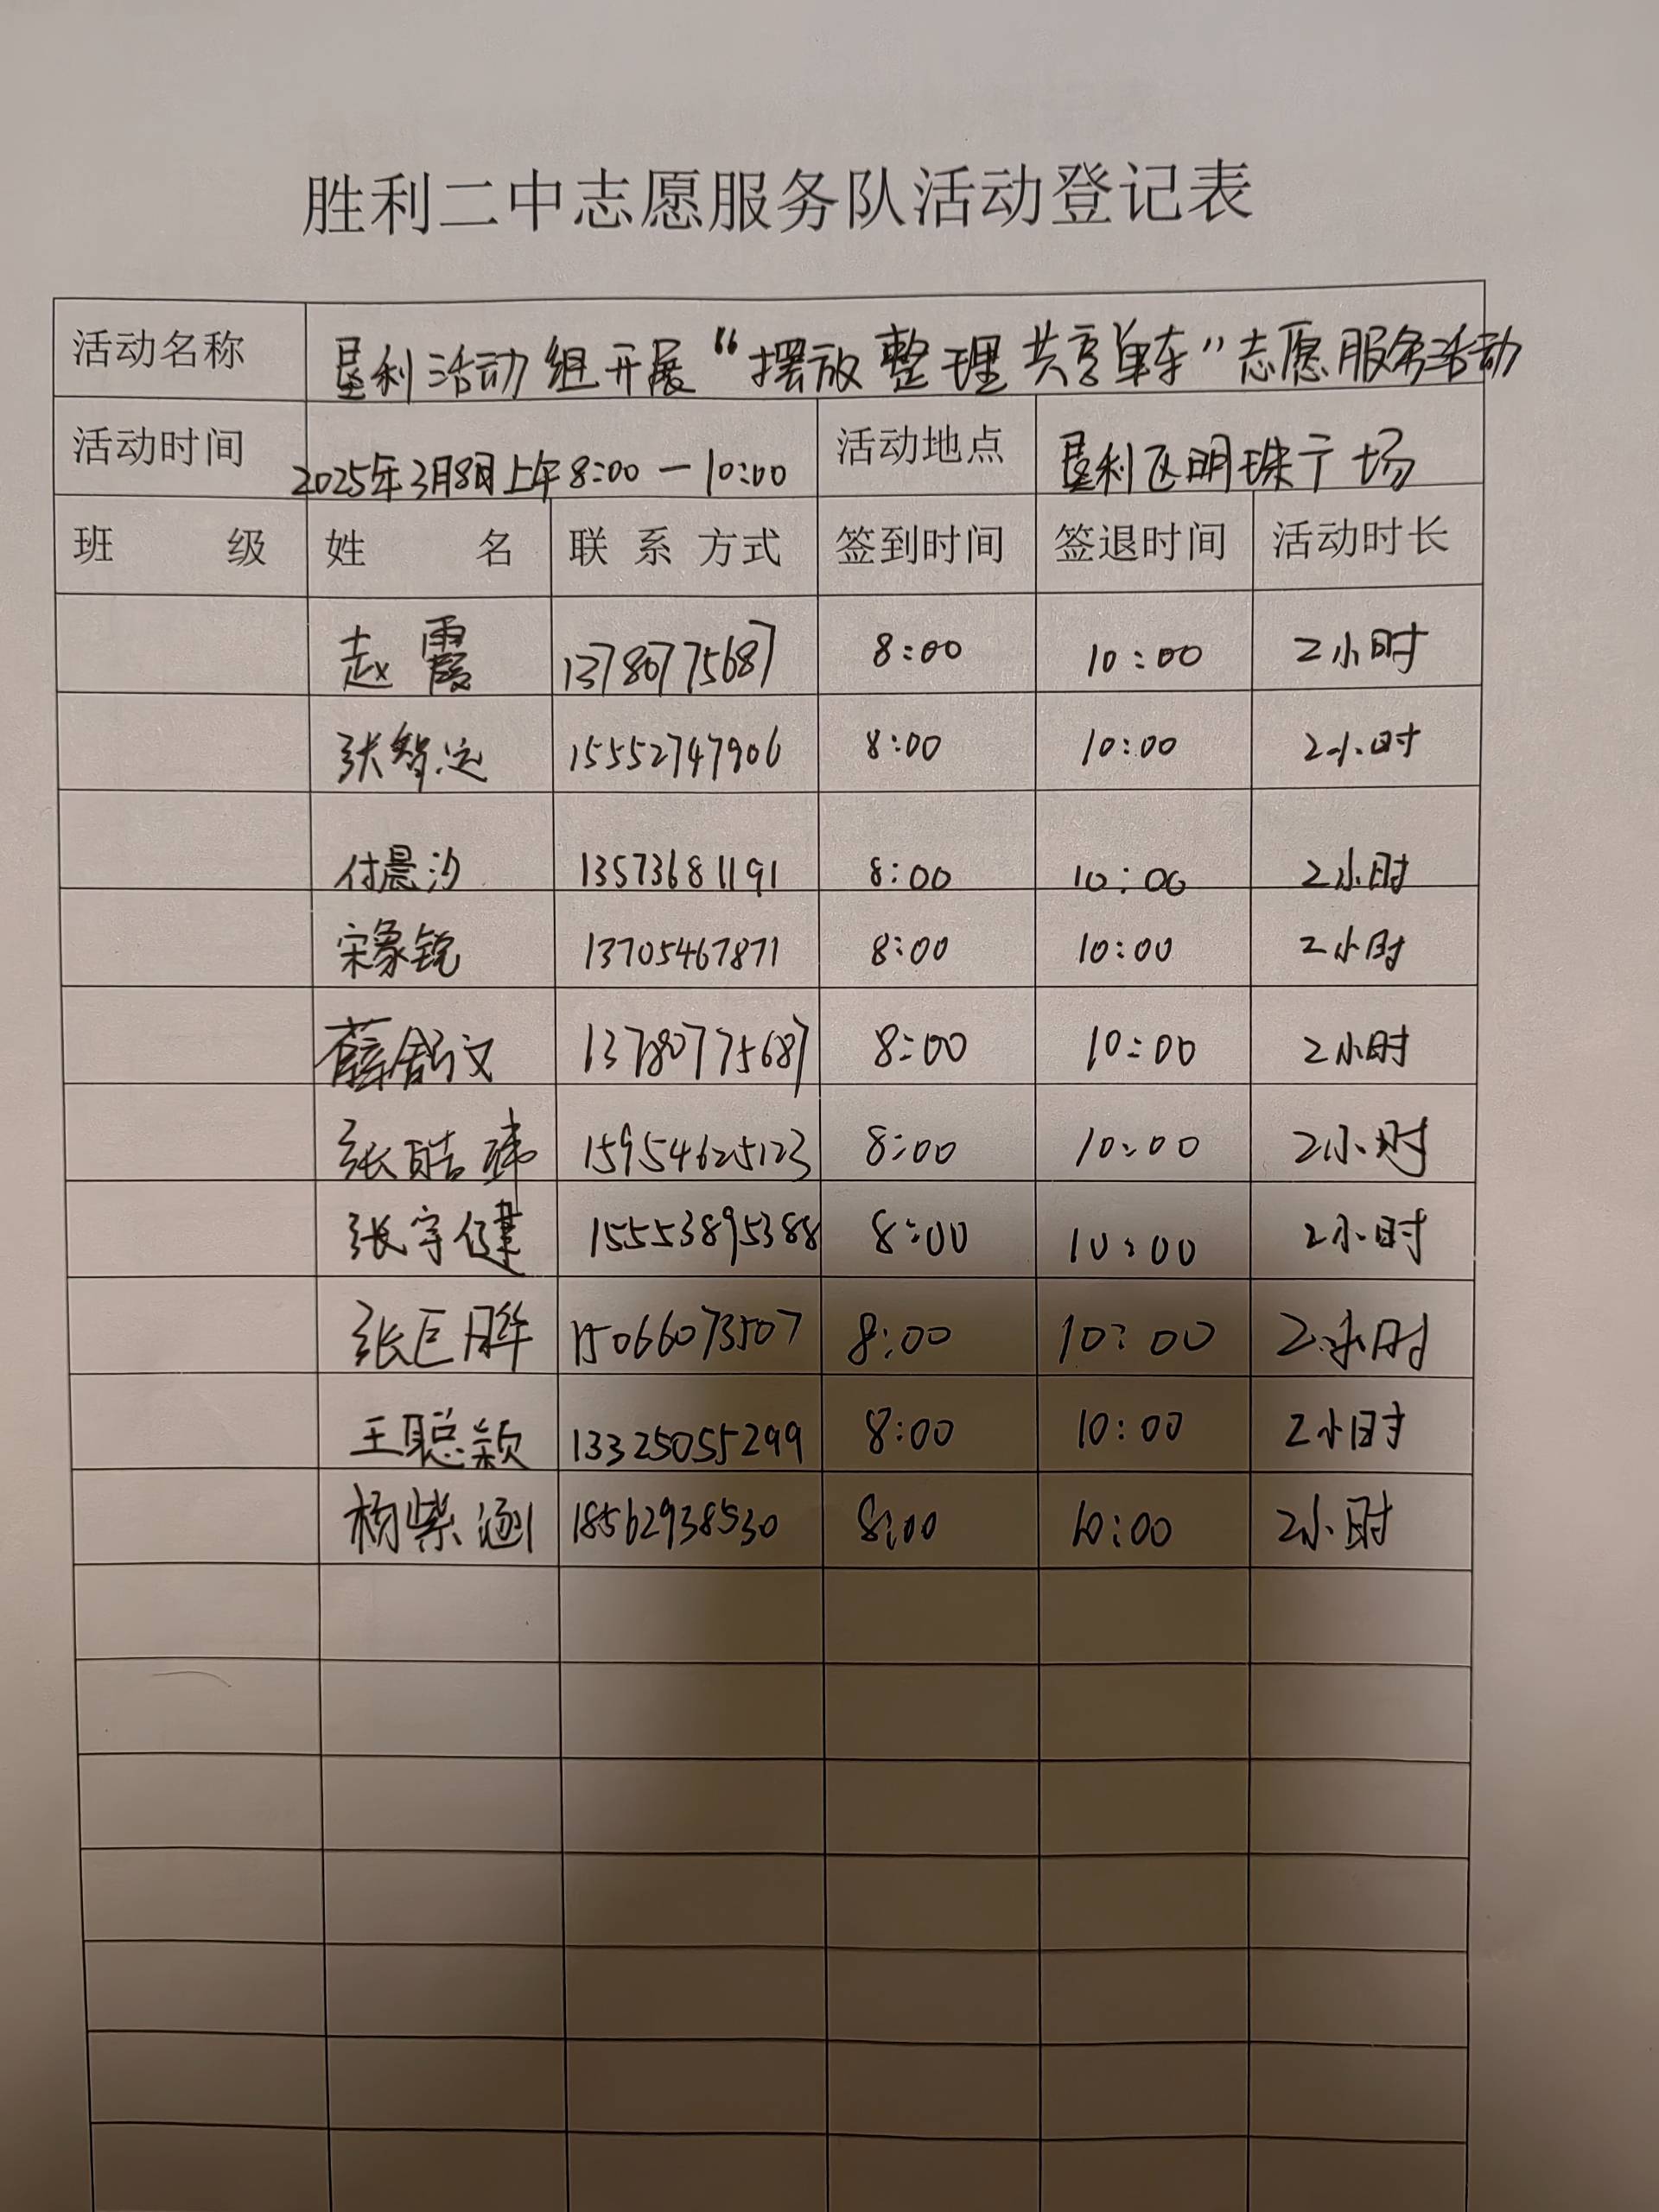 胜利二中志愿服务队活动登记表
活动名称 垦利活动组开展“摆放整理共享单车”志愿服务活动
活动时间 2025年3月8日上午8:00—10:00 活动地点 垦利区明珠广场
班 级 姓 名 联系方式 签到时间 签退时间 活动时长
赵霞 13780775687 8:00 10:00 2小时
张智远 15552747906 8:00 10:00 2小时
付晨汐 13573681191 8:00 10:00 2小时
宋彖锐 13705467871 8:00 10:00 2小时
薛舒文 13780775687 8:00 10:00 2小时
张皓 15954625123 8:00 10:00 2小时
张宇健 15553895388 8:00 10:00 2小时
张巨 15066073507 8:00 10:00 2小时
王聪颖 13325055299 8:00 10:00 2小时
杨紫涵 18562938530 8:00 10:00 2小时